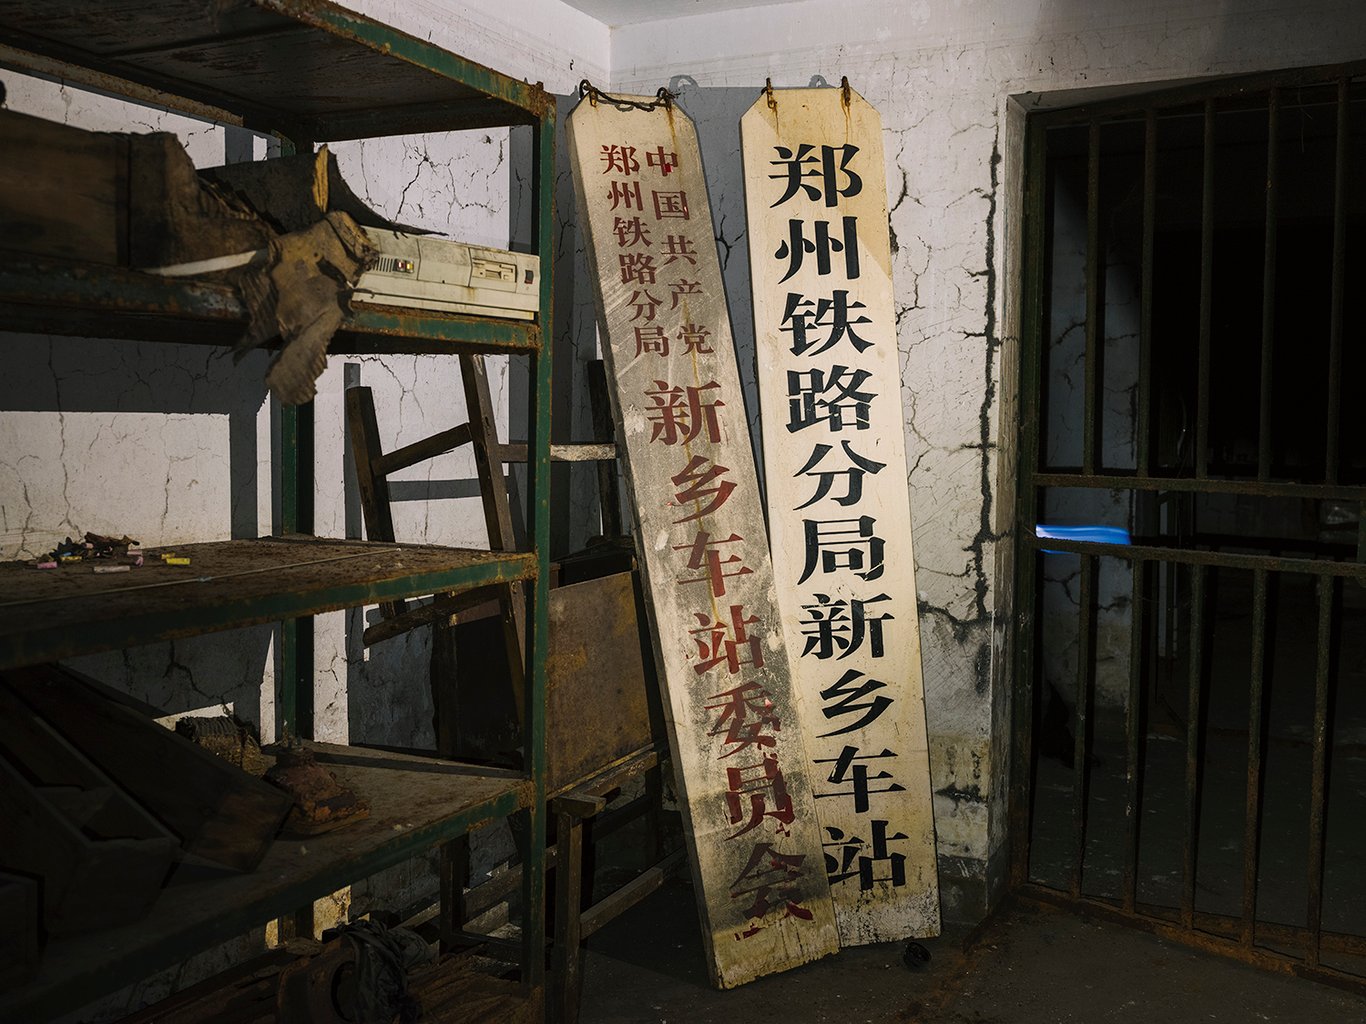 中国共产党
郑州铁路分局
新乡车站委员会
郑州铁路分局新乡车站